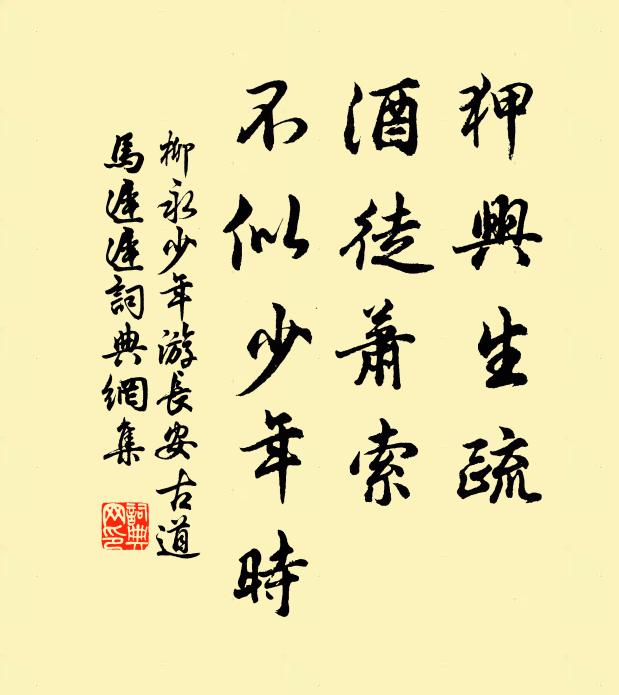 狎興生疏
酒徒蕭索
不似少年時
柳永少年游長安古道
馬遲遲詞典網集
詞典
网印